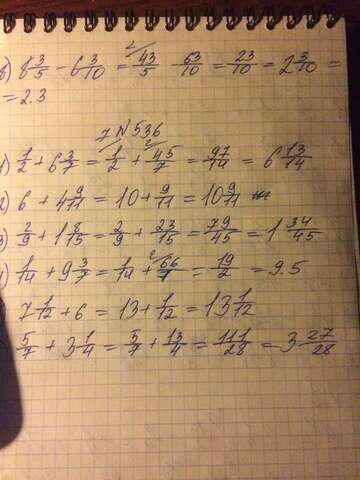 в) 8 3/5 - 6 3/10 = 43/5 - 63/10 = 23/10 = 2 3/10 =
= 2.3
N536
1/2 + 6 3/7 = 1/2 + 45/7 = 97/14 = 6 13/14
2) 6 + 4 9/11 = 10 + 9/11 = 10 9/11
3) 2/9 + 1 8/15 = 2/9 + 23/15 = 79/45 = 1 34/45
1/14 + 9 3/7 = 1/14 + 66/7 = 19/2 = 9.5
7 1/12 + 6 = 13 + 1/12 = 13 1/12
5/7 + 3 1/4 = 5/7 + 13/4 = 111/28 = 3 27/28